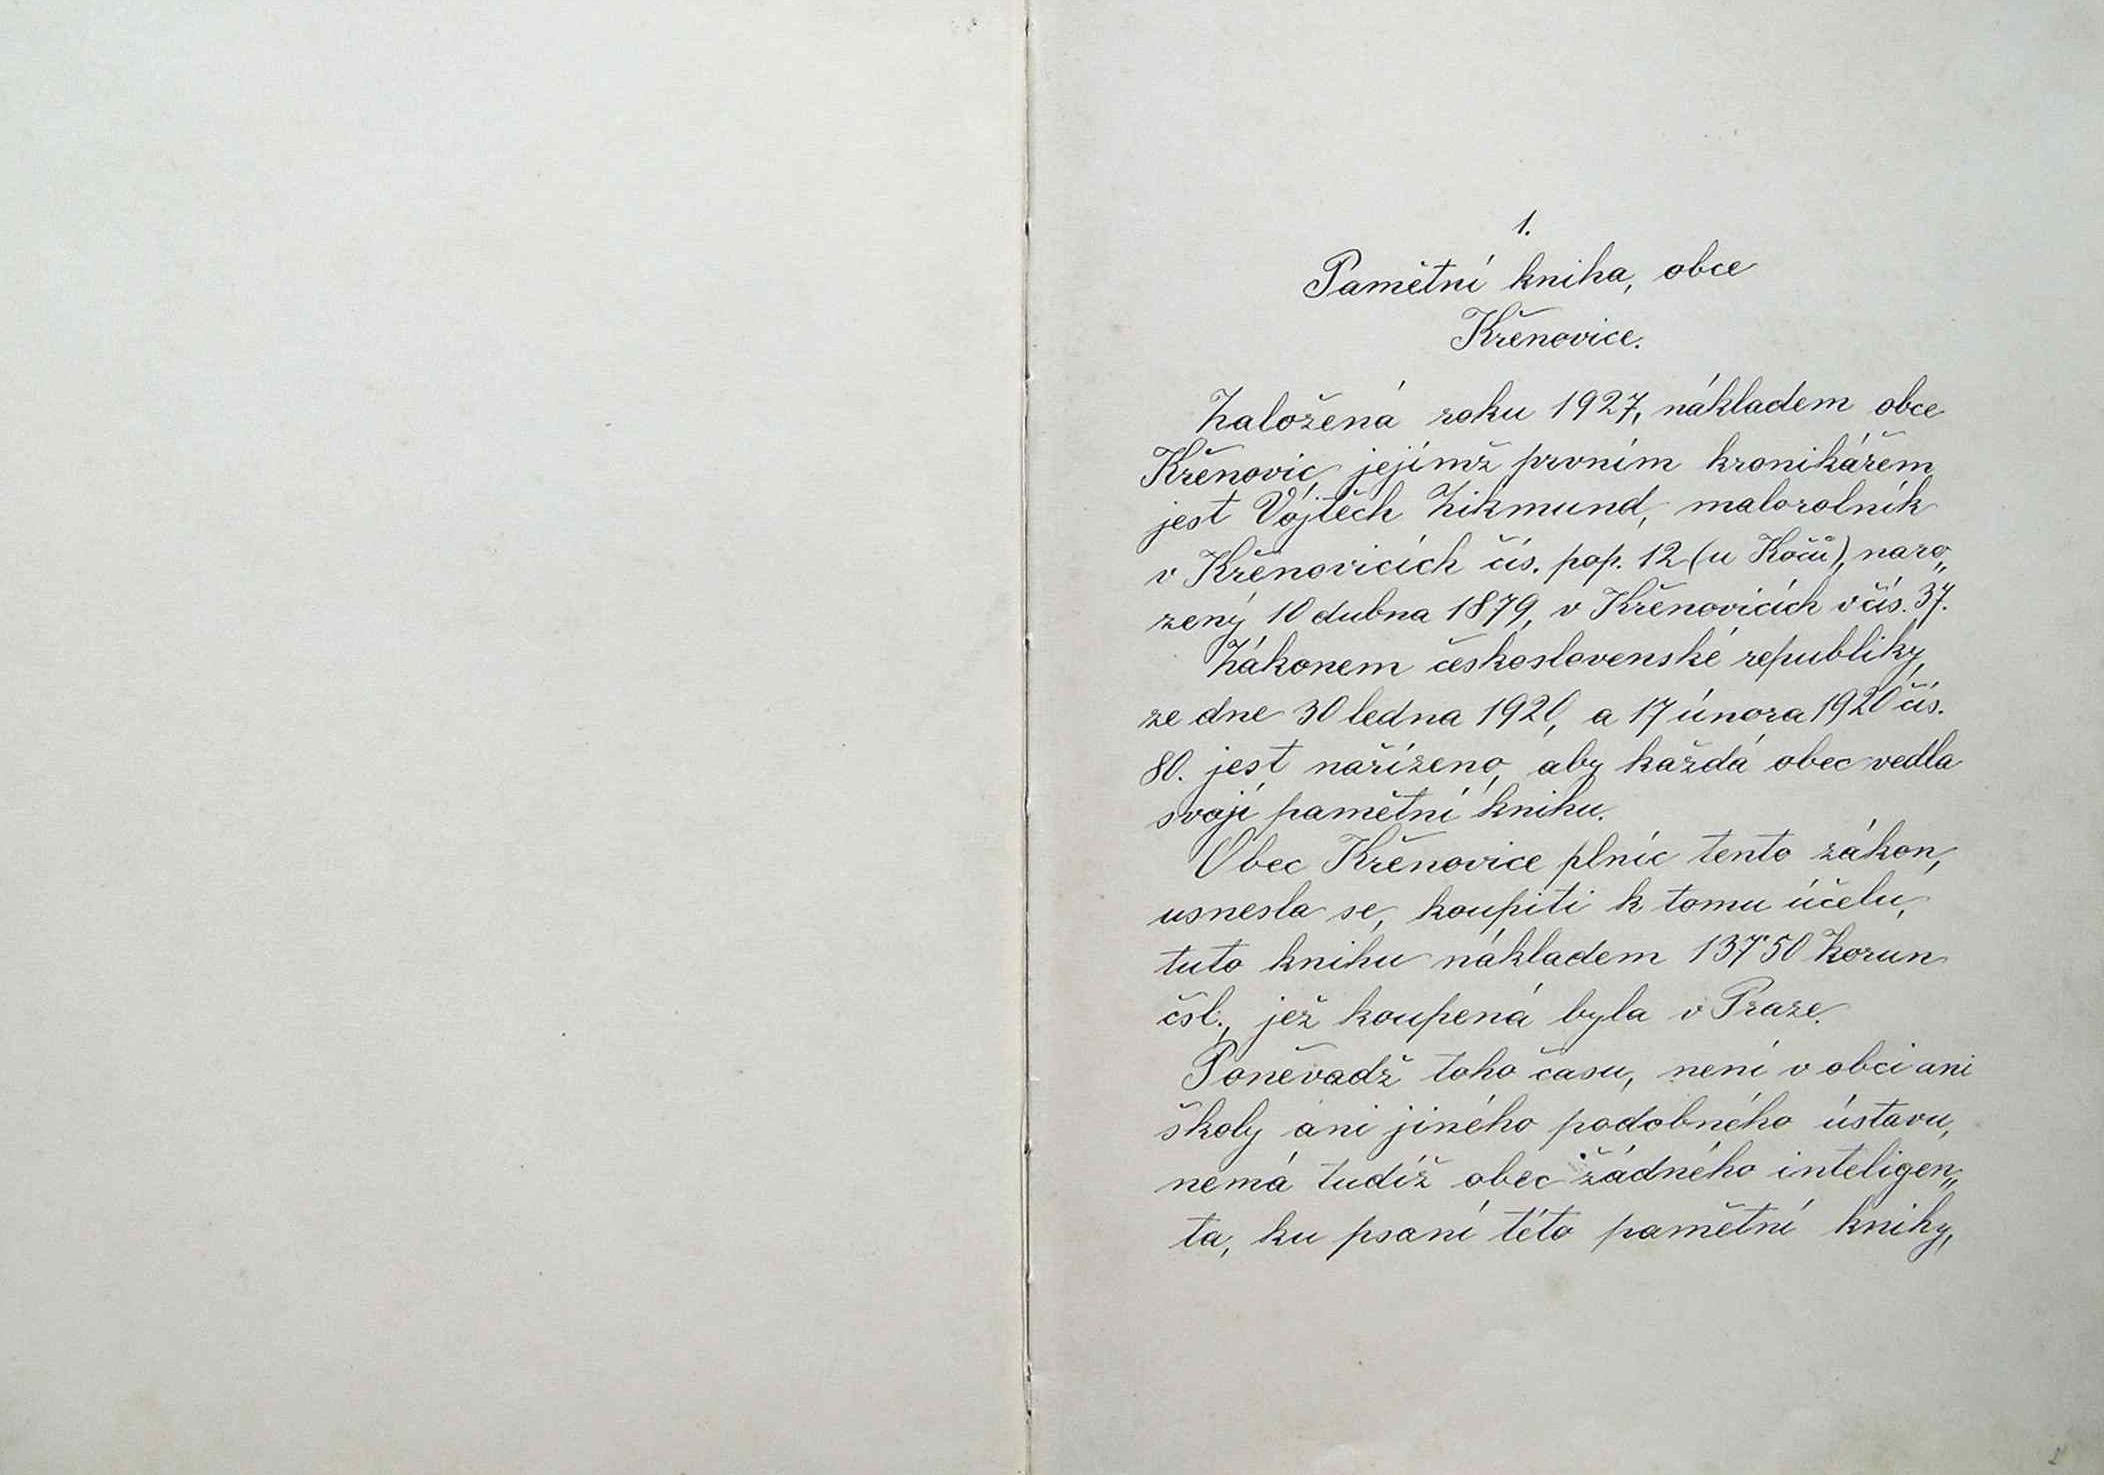 1.
Pamětní kniha, obce
Křenovice.
Založená roku 1927, nákladem obce
Křenovic, jejímž prvním kronikářem
jest Vojtěch Zikmund, malorolník
v Křenovicích čís. pop. 12 (u Kočů), naro„
zený 10 dubna 1879, v Křenovicích v čís. 37.
Zákonem československé republiky,
ze dne 30 ledna 1920, a 17 února 1920 čís.
80. jest nařízeno, aby každá obec vedla
svoji pamětní knihu.
Obec Křenovice plníc tento zákon,
usnesla se, koupiti k tomu účelu,
tuto knihu nákladem 137'50 Korun
čsl., jež koupená byla v Praze.
Poněvadž toho času, není v obci ani
školy ani jiného podobného ústavu,
nemá tudíž obec žádného inteligen„
ta, ku psaní této pamětní knihy,